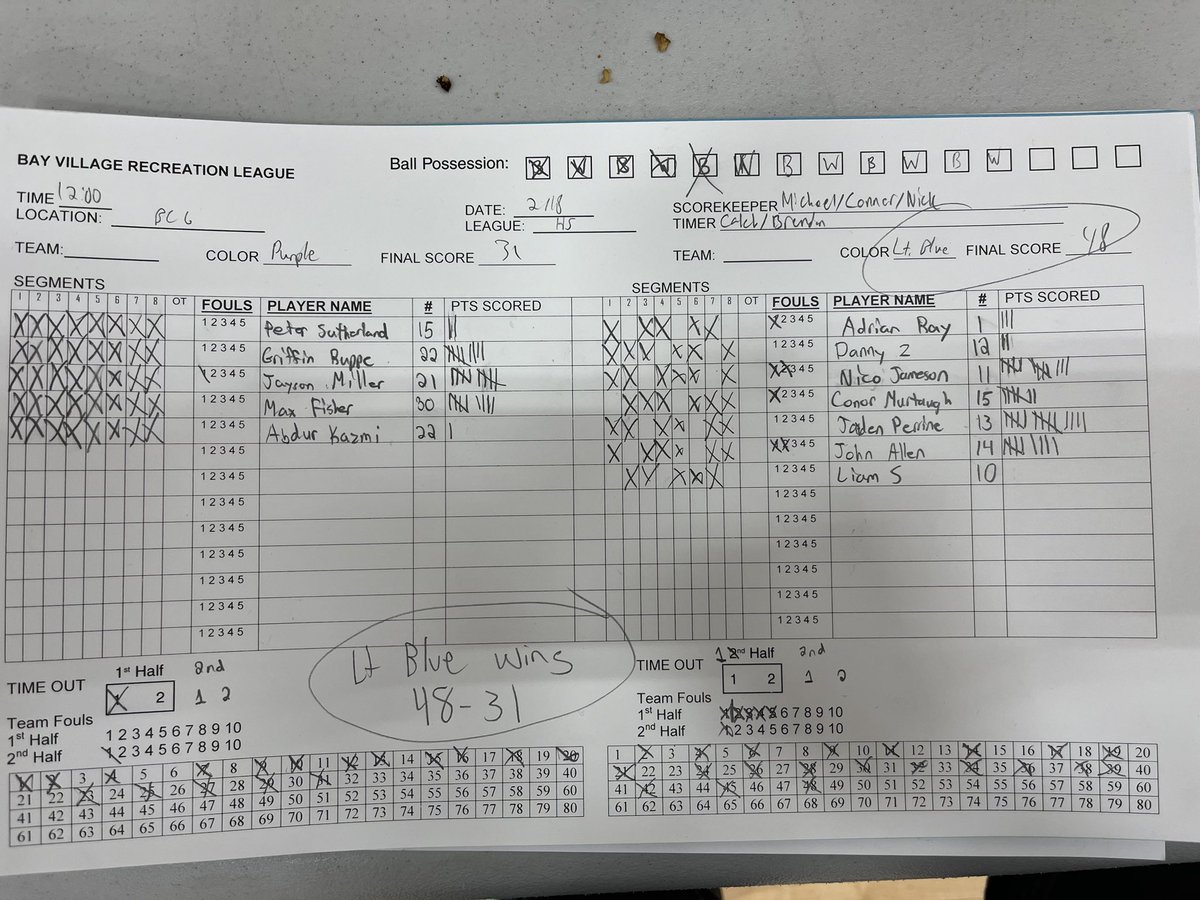 BAY VILLAGE RECREATION LEAGUE
Ball Possession: B W B W B W B W B W B W
TIME 12:00
LOCATION: BC G
DATE: 2/18
LEAGUE: HS
SCOREKEEPER Michael/Connor/Nick
TIMER Caleb/Brendan
TEAM: COLOR Purple FINAL SCORE 31
TEAM: COLOR Lt. Blue FINAL SCORE 48
SEGMENTS
1 2 3 4 5 6 7 8 OT FOULS PLAYER NAME # PTS SCORED
X X X X X X X X 1 2 3 4 5 Peter Sutherland 15 ||
X X X X X X X X 1 2 3 4 5 Griffin Buppe 22 |||| ||||
X X X X X X X X 1 2 3 4 5 Jayson Miller 21 |||| ||||
X X X X X X X X 1 2 3 4 5 Max Fisher 30 |||| ||||
X X X X X X X X 1 2 3 4 5 Abdur Kazmi 22 |
1 2 3 4 5
1 2 3 4 5
1 2 3 4 5
1 2 3 4 5
1 2 3 4 5
1 2 3 4 5
1 2 3 4 5
1 2 3 4 5
SEGMENTS
1 2 3 4 5 6 7 8 OT FOULS PLAYER NAME # PTS SCORED
X X X X X 1 2 3 4 5 Adrian Ray 1 |||
X X X X X X 1 2 3 4 5 Danny Z 12 ||
X X X X X X 1 2 3 4 5 Nico Jameson 11
X X X X X X 1 2 3 4 5 Conor Murtaugh 15
X X X X X X 1 2 3 4 5 Jaden Perrine 13
X X X X X X 1 2 3 4 5 John Allen 14
X X X X X 1 2 3 4 5 Liam S 10
1 2 3 4 5
1 2 3 4 5
1 2 3 4 5
1 2 3 4 5
1 2 3 4 5
1 2 3 4 5
Lt Blue wins
48-31
1st Half 2nd
TIME OUT 1 2 1 2
Team Fouls
1st Half 1 2 3 4 5 6 7 8 9 10
2nd Half 1 2 3 4 5 6 7 8 9 10
1 2 3 4 5 6 7 8 9 10 11 12 13 14 15 16 17 18 19 20
21 22 23 24 25 26 27 28 29 30 31 32 33 34 35 36 37 38 39 40
41 42 43 44 45 46 47 48 49 50 51 52 53 54 55 56 57 58 59 60
61 62 63 64 65 66 67 68 69 70 71 72 73 74 75 76 77 78 79 80
1st Half 2nd
TIME OUT 1 2 1 2
Team Fouls
1st Half 1 2 3 4 5 6 7 8 9 10
2nd Half 1 2 3 4 5 6 7 8 9 10
1 2 3 4 5 6 7 8 9 10 11 12 13 14 15 16 17 18 19 20
21 22 23 24 25 26 27 28 29 30 31 32 33 34 35 36 37 38 39 40
41 42 43 44 45 46 47 48 49 50 51 52 53 54 55 56 57 58 59 60
61 62 63 64 65 66 67 68 69 70 71 72 73 74 75 76 77 78 79 80